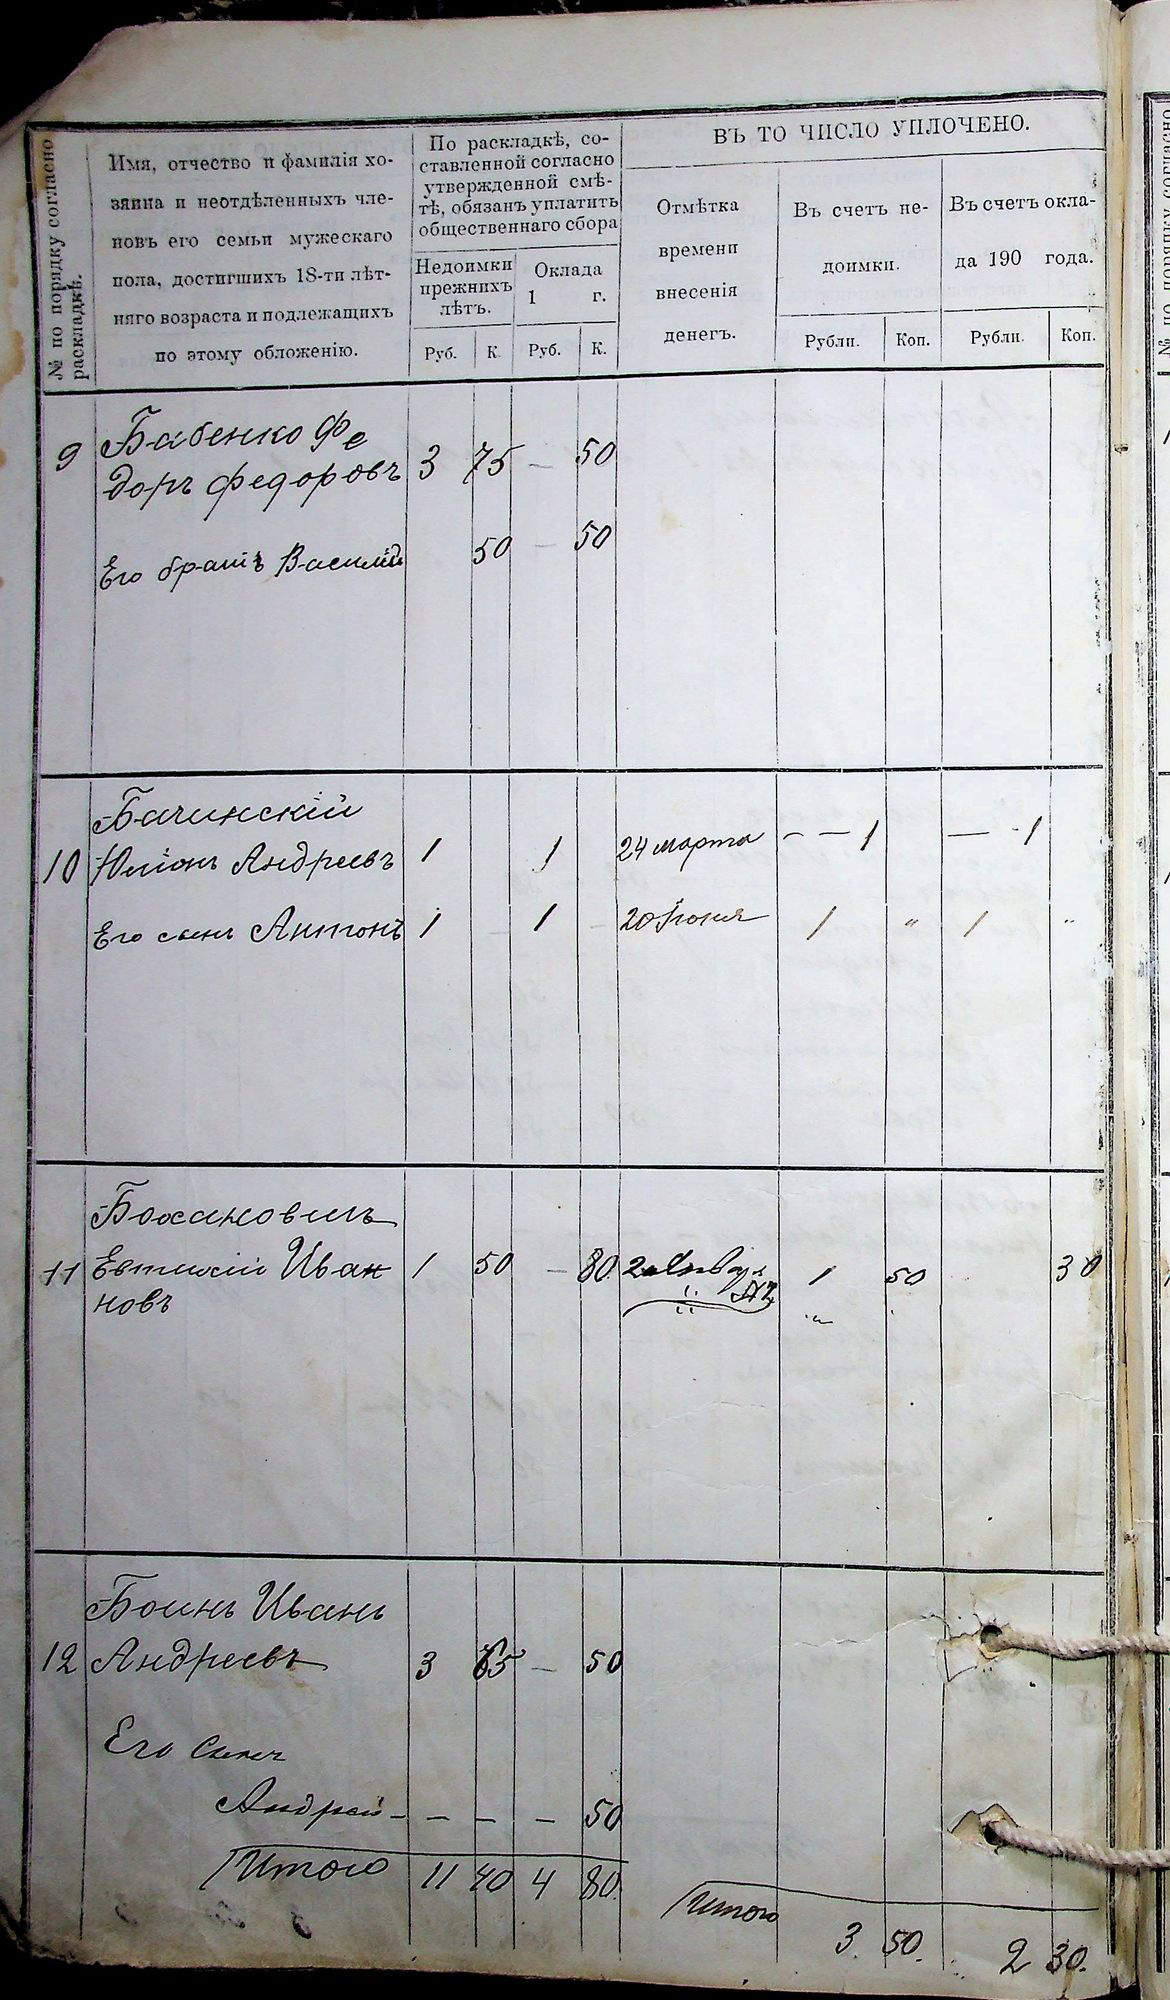 № по порядку согласно
раскладкѣ.
Имя, отчество и фамилія хо-
зяина и неотдѣленныхъ чле-
новъ его семьи мужескаго
пола, достигшихъ 18-ти лѣт-
няго возраста и подлежащихъ
по этому обложенію.
По раскладкѣ, со-
ставленной согласно
утвержденной смѣ-
тѣ, обязанъ уплатить
общественнаго сбора
Недоимки
прежнихъ
лѣтъ.
Оклада
1 г.
Руб. К. Руб. К.
ВЪ ТО ЧИСЛО УПЛОЧЕНО.
Отмѣтка
времени
внесенія
денегъ.
Въ счетъ не-
доимки.
Въ счетъ окла-
да 190 года.
Рубли. Коп. Рубли. Коп.
Бабенко Фе
9 доръ Федоровъ 3 75 — 50
Его братъ Василій 50 — 50
Бачинскій
10 Юліонъ Андреевъ 1 1 24 марта — — 1 — 1
Его сынъ Антонъ 1 — 1 — 20 Іюня 1 " 1 "
Бохановичъ
11 Евтихій Иван 1 50 — 80 1 50 30
новъ
Боинъ Иванъ
12 Андреевъ 3 65 — 50
Его сынъ
Андрей — — — — 50
Итого 11 40 4 80
Итого 3 50. 2 30.